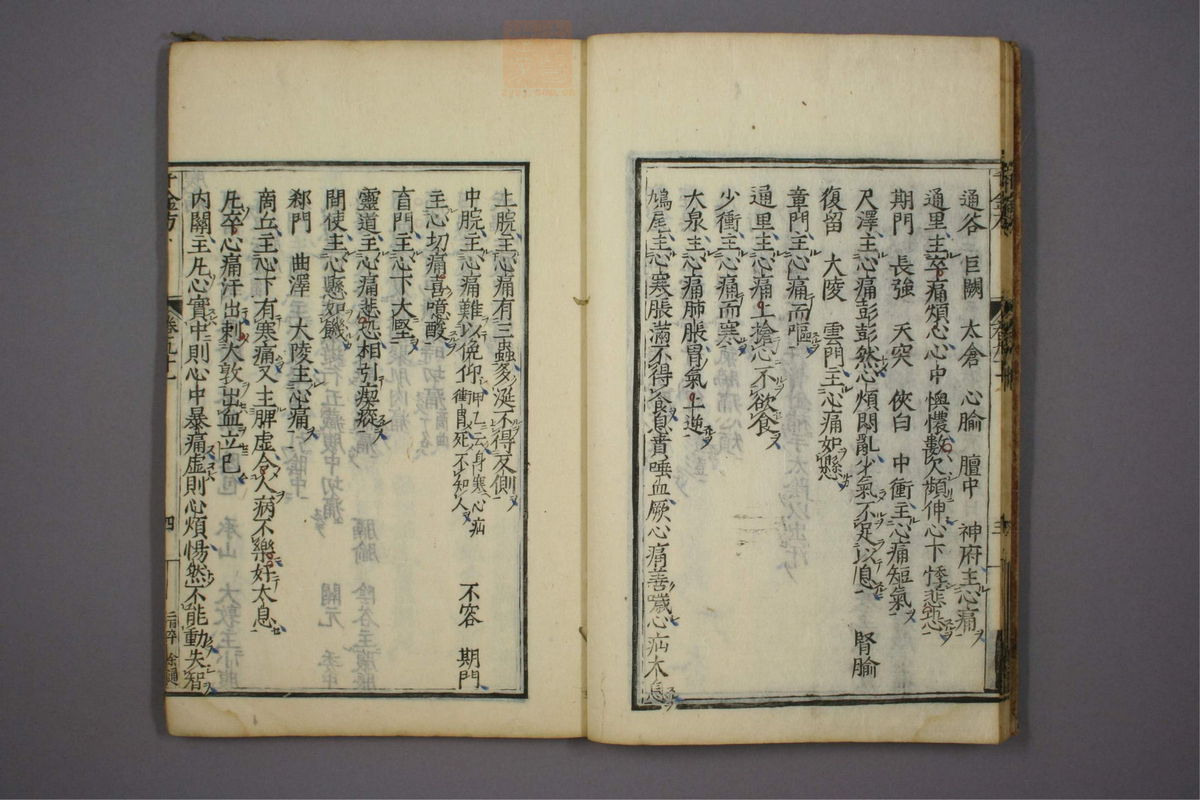 通谷 巨闕 太倉 心腧 膻中 神府主心痛
通里主卒痛煩心心中懊憹數欠頻伸心下悸悲恐
期門 長強 天突 俠白 中衝主心痛短氣
尺澤主心痛彭彭然心煩悶亂少氣不足以息 腎腧
復留 大陵 雲門主心痛如懸
章門主心痛而嘔
通里主心痛上搶心不欲食
少衝主心痛而寒
大泉主心痛肺脹胃氣上逆
鳩尾主心寒脹滿不得食息賁唾血厥心痛善噦心疝太息
上脘主心痛有三蟲多涎不得反側
中脘主心痛難以俛仰甲乙云身寒心疝衝冒死不知人 不容 期門
主心切痛喜噫酸
肓門主心下大堅
靈道主心痛悲恐相引瘈瘲
間使主心懸如饑
郄門 曲澤 大陵主心痛
商丘主心下有寒痛又主脾虛令人病不樂好太息
凡卒心痛汗出刺大敦出血立已
內關主凡心實中則心中暴痛虛則心煩惕然不能動失智
千金方
四